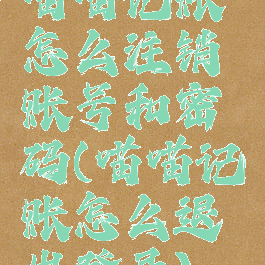 喵喵记账
怎么注销
账号和密
码(喵喵记
账怎么退
出登录)